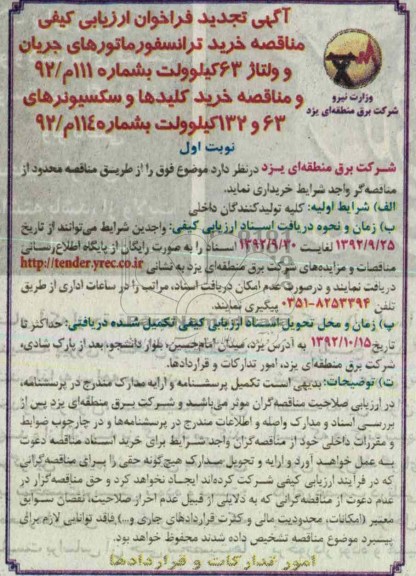 آگهی تجدید فراخوان ارزیابی کیفی
مناقصه خرید ترانسفورماتورهای جریان
و ولتاژ ۶۳کیلوولت بشماره ۱۱۱م/۹۲
و مناقصه خرید کلیدها و سکسیونرهای
۶۳ و ۱۳۲کیلوولت بشماره۱۱۴م/۹۲
وزارت نیرو
شرکت برق منطقه‌ای یزد
نوبت اول
شرکت برق منطقه‌ای یزد درنظر دارد موضوع فوق را از طریق مناقصه محدود از
مناقصه‌گر واجد شرایط خریداری نماید.
الف) شرایط اولیه: کلیه تولیدکنندگان داخلی
ب) زمان و نحوه دریافت اسناد ارزیابی کیفی: واجدین شرایط می‌توانند از تاریخ
۱۳۹۲/۹/۲۵ لغایت ۱۳۹۲/۹/۳۰ اسناد را به صورت رایگان از پایگاه اطلاع‌رسانی
مناقصات و مزایده‌های شرکت برق منطقه‌ای یزد به نشانی http://tender.yrec.co.ir
دریافت نمایند و درصورت عدم امکان دریافت اسناد، مراتب را در ساعات اداری از طریق
تلفن ۸۲۵۳۳۹۴-۰۳۵۱ پیگیری نمایند.
پ) زمان و محل تحویل اسناد ارزیابی کیفی تکمیل شده دریافتی: حداکثر تا
تاریخ ۱۳۹۲/۱۰/۱۵ به آدرس یزد، میدان امام‌حسین، بلوار دانشجو، بعد از پارک شادی،
شرکت برق منطقه‌ای یزد، امور تدارکات و قراردادها.
ت) توضیحات: بدیهی است تکمیل پرسشنامه و ارایه مدارک مندرج در پرسشنامه،
در ارزیابی صلاحیت مناقصه‌گران موثر می‌باشد و شرکت برق منطقه‌ای یزد پس از
بررسی اسناد و مدارک واصله و اطلاعات مندرج در پرسشنامه‌ها و در چارچوب ضوابط
و مقررات داخلی خود از مناقصه‌گران واجد شرایط برای خرید اسناد مناقصه دعوت
به عمل خواهد آورد و ارایه و تحویل مدارک هیچ‌گونه حقی را برای مناقصه‌گرانی که
در فرآیند ارزیابی کیفی شرکت کرده‌اند ایجاد نخواهد کرد و حق مناقصه‌گزار در
عدم دعوت از مناقصه‌گرانی که به دلایلی از قبیل عدم احراز صلاحیت، نقصان سوابق
معتبر (امکانات، محدودیت مالی و کثرت قراردادهای جاری و...) فاقد توانایی لازم برای
پیشبرد موضوع مناقصه تشخیص داده شدند محفوظ خواهد بود.
امور تدارکات و قراردادها